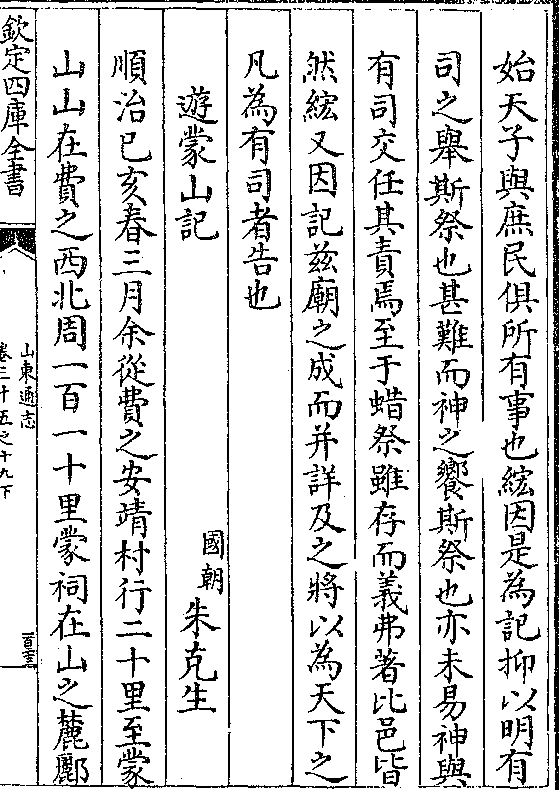 始天子與庶民俱所有事也綋因是為記抑以明有
司之舉斯祭也甚難而神之饗斯祭也亦未易神與
有司交任其責焉至于蜡祭雖存而義弗著比邑皆
然綋又因記兹廟之成而并詳及之將以為天下之
凡為有司者告也
遊蒙山記
國朝朱克生
順治已亥春三月余從費之安靖村行二十里至蒙
山山在費之西北周一百一十里蒙祠在山之麓酈
欽定四庫全書
山東通志
卷三十五之十九下